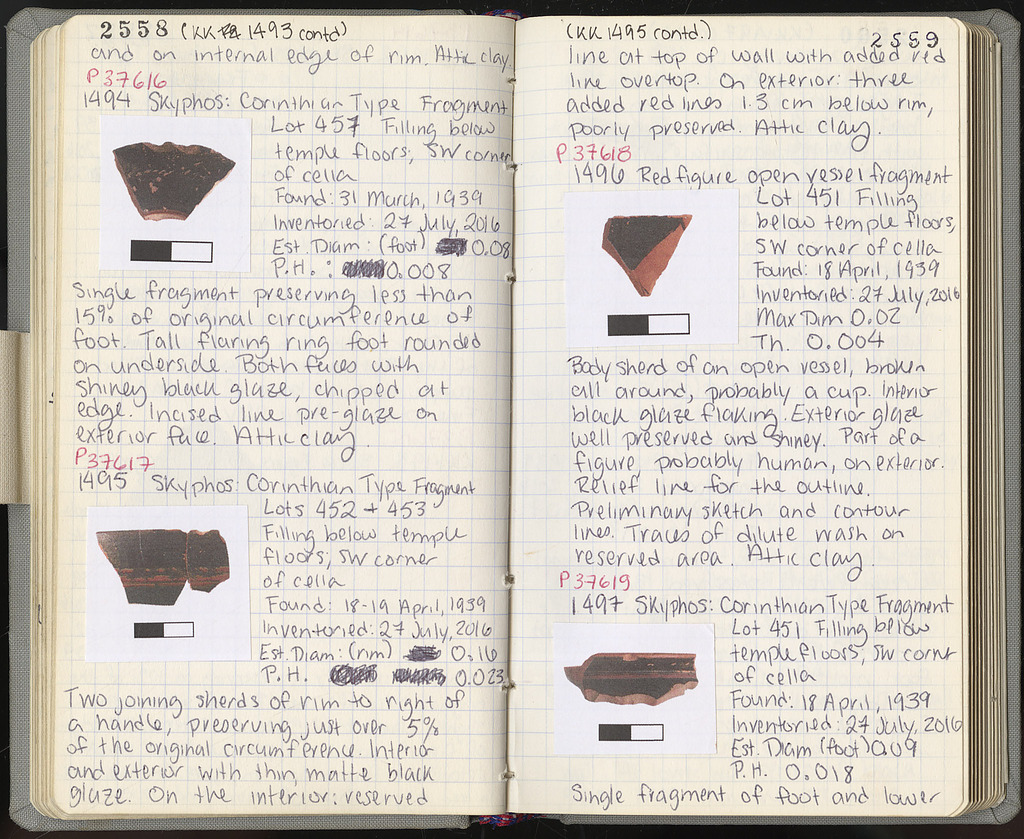 2558 (KK 1493 contd)
and on internal edge of rim. Attic clay.
P 37616
1494 Skyphos: Corinthian Type Fragment
Lot 457 Filling below
temple floors; SW corner
of cella
Found: 31 March, 1939
Inventoried: 27 July, 2016
Est. Diam: (foot) 0.08
P.H.: 0.008
Single fragment preserving less than
15% of original circumference of
foot. Tall flaring ring foot rounded
on underside. Both faces with
shiney black glaze, chipped at
edge. Incised line pre-glaze on
exterior face. Attic clay.
P37617
1495 Skyphos: Corinthian Type Fragment
Lots 452 + 453
Filling below temple
floors; SW corner
of cella
Found: 18-19 April, 1939
Inventoried: 27 July, 2016
Est. Diam: (rim) 0.16
P.H. 0.023
Two joining sherds of rim to right of
a handle, preserving just over 5%
of the original circumference. Interior
and exterior with thin, matte black
glaze. On the interior: reserved
(KK 1495 contd.) 2559
line at top of wall with added red
line overtop. On exterior: three
added red lines 1.3 cm below rim,
poorly preserved. Attic clay.
P37618
1496 Red figure open vessel fragment
Lot 451 Filling
below temple floors,
SW corner of cella
Found: 18 April, 1939
Inventoried: 27 July, 2016
Max Dim 0.02
Th. 0.004
Body sherd of an open vessel, broken
all around, probably a cup. Interior
black glaze flaking. Exterior glaze
well preserved and shiney. Part of a
figure, probably human, on exterior.
Relief line for the outline.
Preliminary sketch and contour
lines. Traces of dilute wash on
reserved area. Attic clay.
P37619
1497 Skyphos: Corinthian Type Fragment
Lot 451 Filling below
temple floors, SW corner
of cella
Found: 18 April, 1939
Inventoried: 27 July, 2016
Est. Diam (foot) 0.09
P.H. 0.018
Single fragment of foot and lower